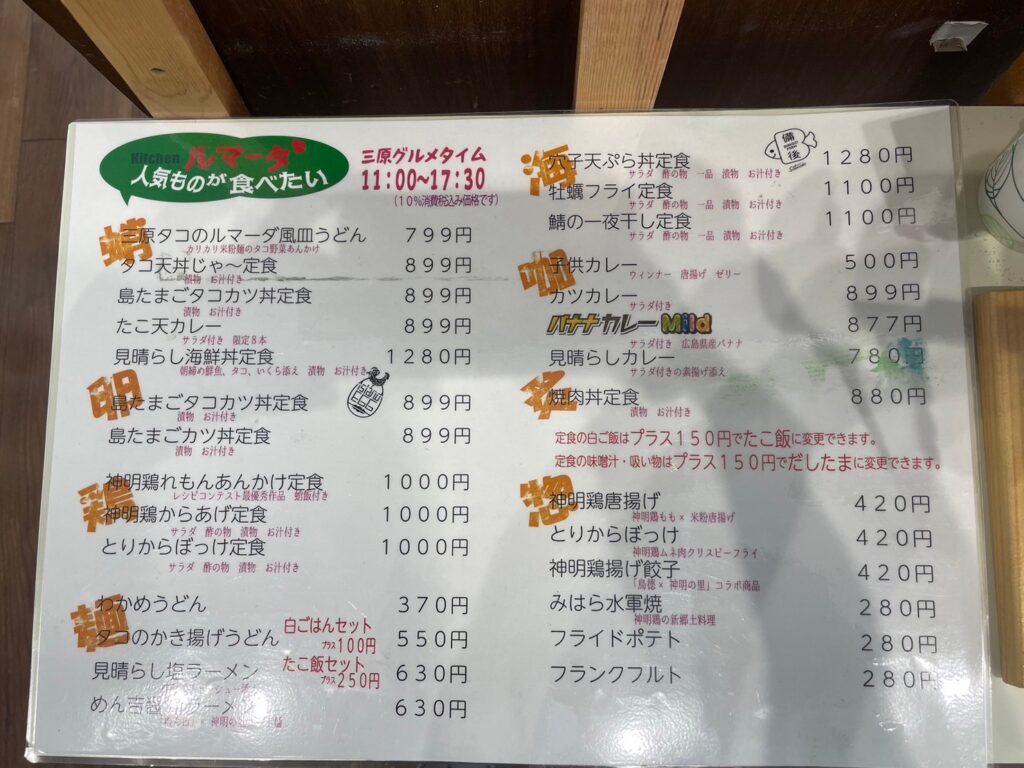 Kitchen ルマーダ
人気ものが食べたい
三原グルメタイム
11:00~17:30
(10%消費税込み価格です)
蛸
三原タコのルマーダ風皿うどん 799円
カリカリ米粉麺のタコ野菜あんかけ
タコ天丼じゃ~定食 899円
漬物 お汁付き
島たまごタコカツ丼定食 899円
漬物 お汁付き
たこ天カレー 899円
サラダ付き 限定8本
見晴らし海鮮丼定食 1280円
朝締め鮮魚、タコ、いくら添え 漬物 お汁付き
卵
島たまごタコカツ丼定食 899円
漬物 お汁付き
島たまごカツ丼定食 899円
漬物 お汁付き
鶏
神明鶏れもんあんかけ定食 1000円
レシピコンテスト最優秀作品 蛸飯付き
神明鶏からあげ定食 1000円
サラダ 酢の物 漬物 お汁付き
とりからぼっけ定食 1000円
サラダ 酢の物 漬物 お汁付き
麺
わかめうどん 370円
タコのかき揚げうどん 550円
白ごはんセット
プラス100円
見晴らし塩ラーメン 630円
たこ飯セット
プラス250円
めん吉 ラーメン 630円
海
穴子天ぷら丼定食 1280円
サラダ 酢の物 一品 漬物 お汁付き
備後
牡蠣フライ定食 1100円
サラダ 酢の物 一品 漬物 お汁付き
鯖の一夜干し定食 1100円
サラダ 酢の物 一品 漬物 お汁付き
咖
子供カレー 500円
ウィンナー 唐揚げ ゼリー
カツカレー 899円
サラダ付き
バナナカレーMild 877円
サラダ付き 広島県産バナナ
見晴らしカレー 780円
サラダ付きの素揚げ添え
焼肉丼定食 880円
漬物 お汁付き
定食の白ご飯はプラス150円でたこ飯に変更できます。
定食の味噌汁・吸い物はプラス150円でだしたまに変更できます。
惣
神明鶏唐揚げ 420円
神明鶏もも× 米粉唐揚げ
とりからぼっけ 420円
神明鶏ムネ肉クリスピーフライ
神明鶏揚げ餃子 420円
「鳥徳×神明の里」コラボ商品
みはら水軍焼 280円
神明鶏の新郷土料理
フライドポテト 280円
フランクフルト 280円